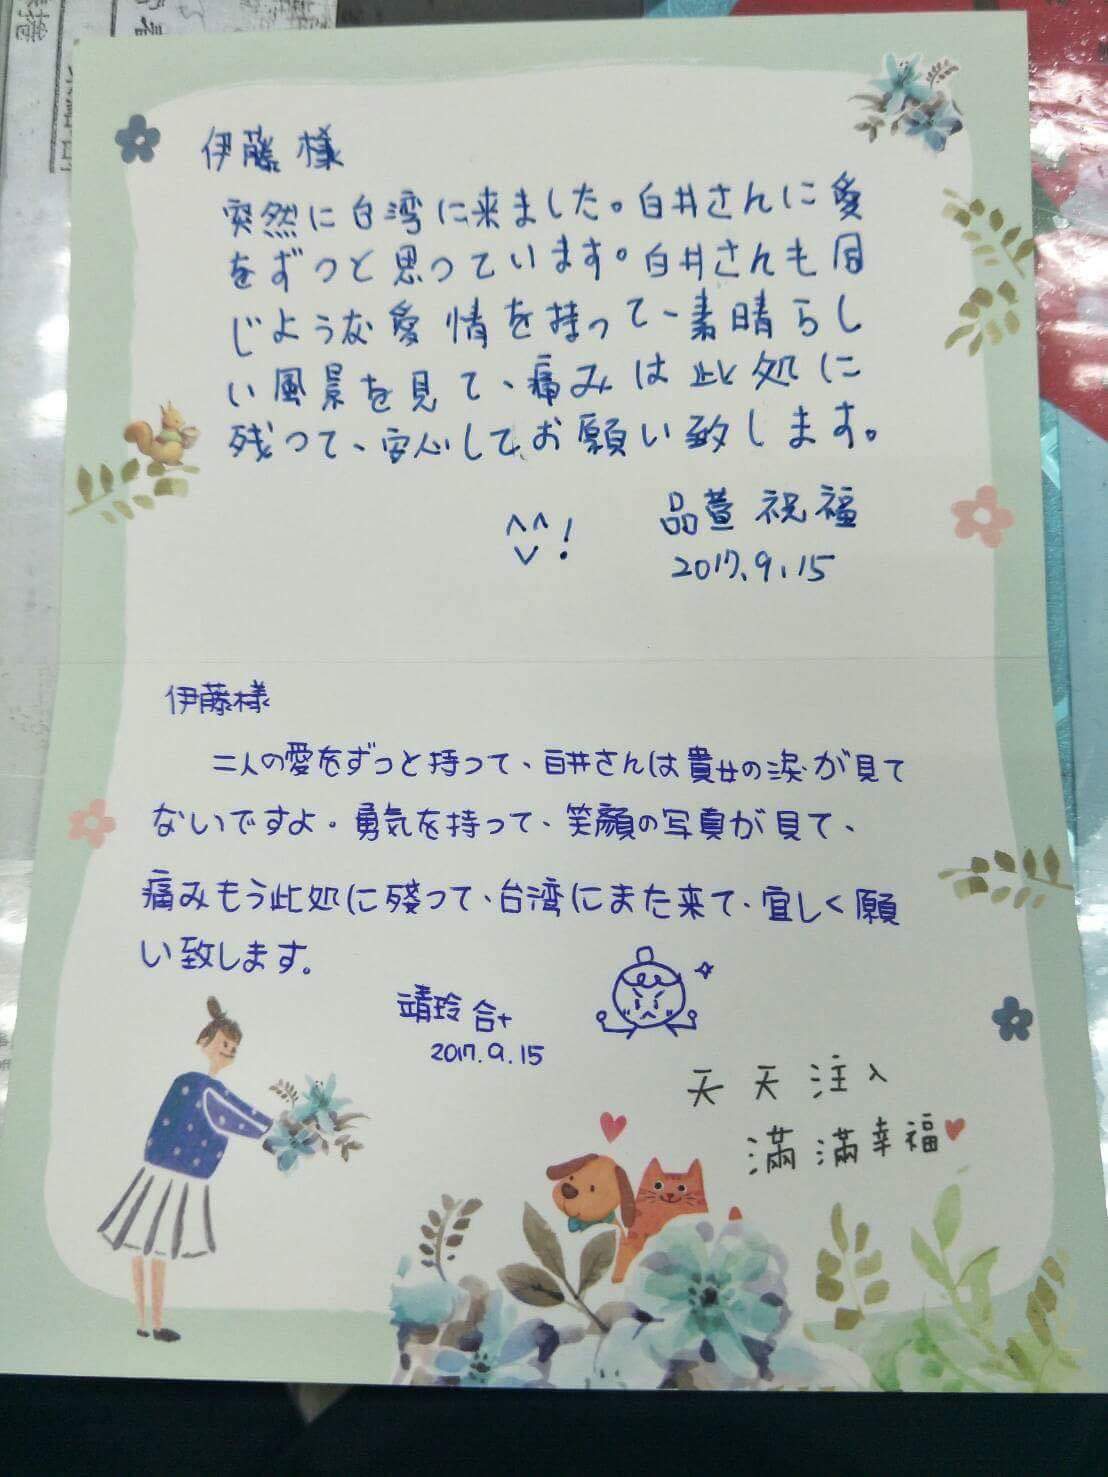 伊藤 様
突然に台湾に来ました。白井さんに愛
をずっと思っています。白井さんも同
じような愛情を持って、素晴らし
い風景を見て、痛みは此処に
残って、安心して、お願い致します。
^^!
品萱 祝福
2017.9.15
伊藤様
二人の愛をずっと持って、白井さんは貴女の涙が見て
ないですよ。勇気を持って、笑顔の写真が見て、
痛みもう此処に殘って、台湾にまた来て、宜しく願
い致します。
靖玲 合十
2017.9.15
天天注入
滿滿幸福